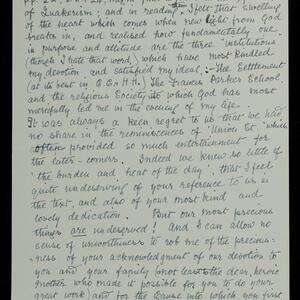 of Quakerism; and in reading them, I felt that swelling
of the heart which comes when new light from God
breaks in, and realised how fundamentally one
in purpose and attitude are the three "institutions"
(though I hate that word), which have most kindled
my devotion, and satisfied my ideal:- The Settlement
(at its best in & C. H.) The Francis Parker School,
and the religious Society into which God has most
mercifully led me in the evening of my life.
It was always a keen regret to us that we had
no share in the reminiscences of "Union St." which
often provided so much entertainment for
the later-comers. Indeed we knew so little of
'the burden and heat of the day', that I feel
quite undeserving of your reference to us in
the text, and also of your most kind and
lovely dedication. But our most precious
things are undeserved! and I can allow no
sense of unworthiness to rob me of the precious-
ness of your acknowledgment of our devotion to
you and your family (not least the dear, heroic
mother who made it possible for you to do your
great work) and for the Cause into which you first